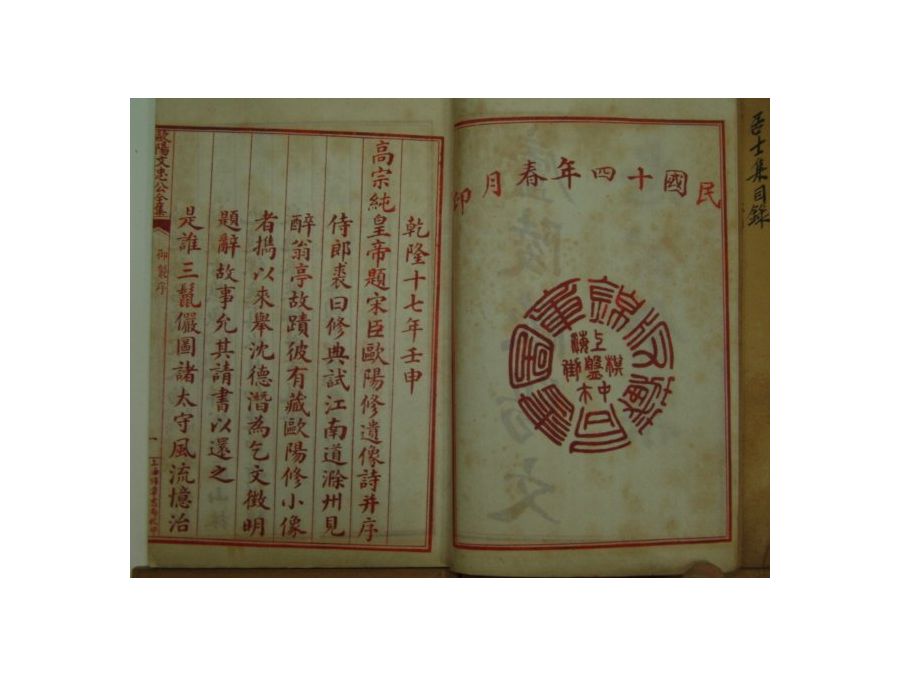 居士集目錄
民國十四年春月印
錦章圖書局藏版
上海棋盤街中市
乾隆十七年壬申
高宗純皇帝題宋臣歐陽修遺像詩并序
侍郎裘曰修典試江南道滁州見
醉翁亭故蹟彼有藏歐陽修小像
者攜以來舉沈德潛為乞文徵明
題辭故事允其請書以還之
是誰三鬣儼圖諸太守風流憶治
歐陽文忠公全集
御製序
一